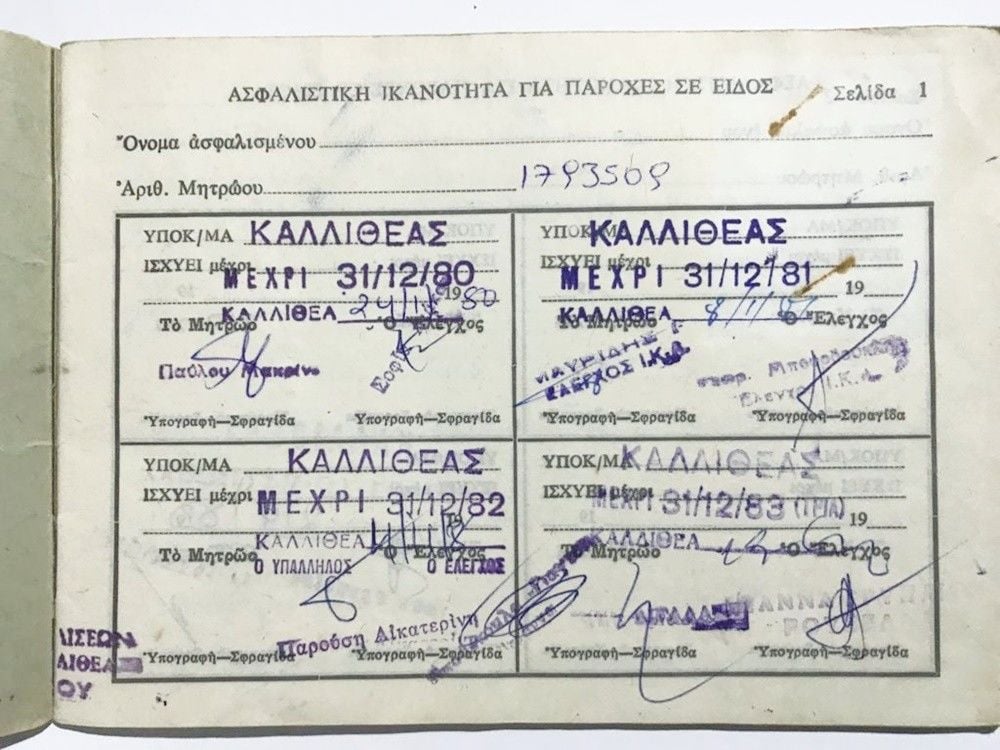 ΑΣΦΑΛΙΣΤΙΚΗ ΙΚΑΝΟΤΗΤΑ ΓΙΑ ΠΑΡΟΧΕΣ ΣΕ ΕΙΔΟΣ Σελίδα 1
Ὄνομα ἀσφαλισμένου
Ἀριθ. Μητρώου 1793509
ΥΠΟΚ/ΜΑ ΚΑΛΛΙΘΕΑΣ
ΙΣΧΥΕΙ μέχρι
ΜΕΧΡΙ 31/12/80
19
ΚΑΛΛΙΘΕΑ 24/11/80
Τὸ Μητρῶο Ὁ Ἔλεγχος
Παύλου Μακρίνα
Ὑπογραφὴ—Σφραγίδα Ὑπογραφὴ—Σφραγίδα
ΥΠΟΚ/ΜΑ ΚΑΛΛΙΘΕΑΣ
ΙΣΧΥΕΙ μέχρι
ΜΕΧΡΙ 31/12/81
19
ΚΑΛΛΙΘΕΑ
Τὸ Μητρῶο Ὁ Ἔλεγχος
ΕΛΕΓΧΟΣ Ι.Κ.Α.
Ὑπογραφὴ—Σφραγίδα Ὑπογραφὴ—Σφραγίδα
ΥΠΟΚ/ΜΑ ΚΑΛΛΙΘΕΑΣ
ΙΣΧΥΕΙ μέχρι
ΜΕΧΡΙ 31/12/82
19
ΚΑΛΛΙΘΕΑ
Τὸ Μητρῶο Ὁ Ἔλεγχος
Ο ΥΠΑΛΛΗΛΟΣ Ο ΕΛΕΓΧΟΣ
Παρούση Αἰκατερίνη
Ὑπογραφὴ—Σφραγίδα Ὑπογραφὴ—Σφραγίδα
ΥΠΟΚ/ΜΑ ΚΑΛΛΙΘΕΑΣ
ΙΣΧΥΕΙ μέχρι
ΜΕΧΡΙ 31/12/83 (ΤΡΙΑ)
19
ΚΑΛΛΙΘΕΑ
Τὸ Μητρῶο Ὁ Ἔλεγχος
Ὑπογραφὴ—Σφραγίδα Ὑπογραφὴ—Σφραγίδα